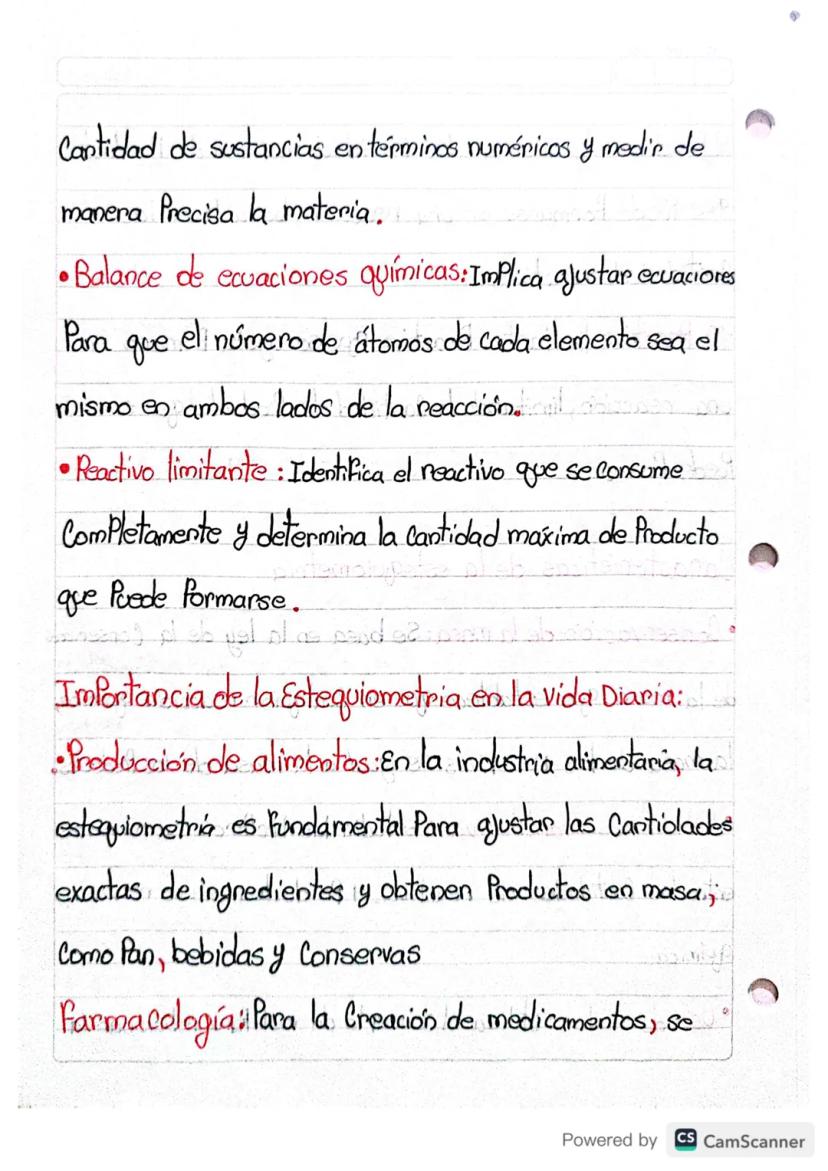 Cantidad de sustancias en términos numéricos y medir de
manera Precisa la materia.
• Balance de ecuaciones químicas: Implica ajustar ecuaciones
Para que el número de átomos de cada elemento sea el
mismo en ambos lados de la reacción.
• Reactivo limitante: Identifica el reactivo que se consume
Completamente y determina la cantidad maxima de Producto
que Puede formarse.
Importancia de la Estequiometria en la Vida Diaria:
• Producción de alimentos: En la industria alimentaria, la
estequiometria es fundamental Para ajustar las Cantidades
exactas de ingredientes y obtener Productos en masa,
Como Pan, bebidas y Conservas
Farmacología: Para la Creación de medicamentos, se
Powered by CS CamScanner